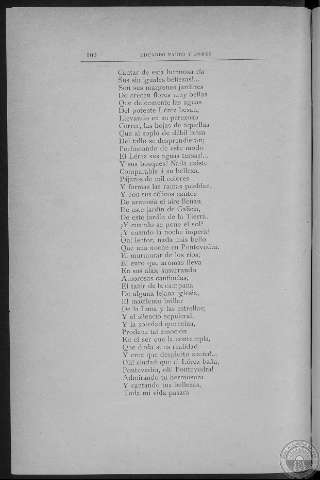 EDUARDO
Cantar de esta hermosa ría
Sus sin iguales bellezas!...
Son sus márgenes jardines
De crecen flores muy bellas
Que de contento las aguas
Del potente Lérez besan,
Llevando en su perezoso
Correr, las hojas de aquellas
Que al soplo de débil brisa
Del tallo se desprendieran;
Perfumando de este modo
El Lérez sus aguas tersas!...
Y sus bosques! Nada existe
Comparable á su belleza,
Pájaros de mil colores
Y formas las ramas pueblan,
Y con sus cánticos
De armonía el aire llenan
De este jardín de Galicia,
De este jardín de la Tierra.
¡Y cuando se pone el sol!
¡Y cuando la noche impera!
Oh! lector, nada más bello
Que una noche en Pontevedra.
El murmurar de los ríos;
El euro que aromas lleva
En sus alas, susurrando
Amorosas cantinelas;
El tañir de la campana
De alguna lejana iglesia,
El macilento brillar
De la Luna y las estrellas;
Y el silencio sepulcral,
Y la soledad que reina,
Produce tal emoción
En el ser que la contempla,
Que duda si es realidad
Y cree que despierto sueña!...
Oh! ciudad que el Lérez baña,
Pontevedra, oh! Pontevedra!
Admirando tu hermosura
Y cantando tus bellezas,
Toda mi vida pasara